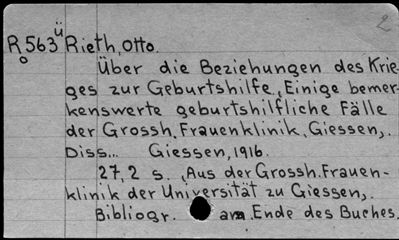 2
R 563 ü Rieth, Otto.
o
Über die Beziehungen des Krie-
ges zur Geburtshilfe, Einige bemer-
kenswerte geburtshilfliche Fälle
der Grossh. Frauenklinik, Giessen,.
Diss... Giessen, 1916.
27, 2 s. „Aus der Grossh. Frauen-
klinik der Universität zu Giessen,.
Bibliogr. am Ende des Buches.